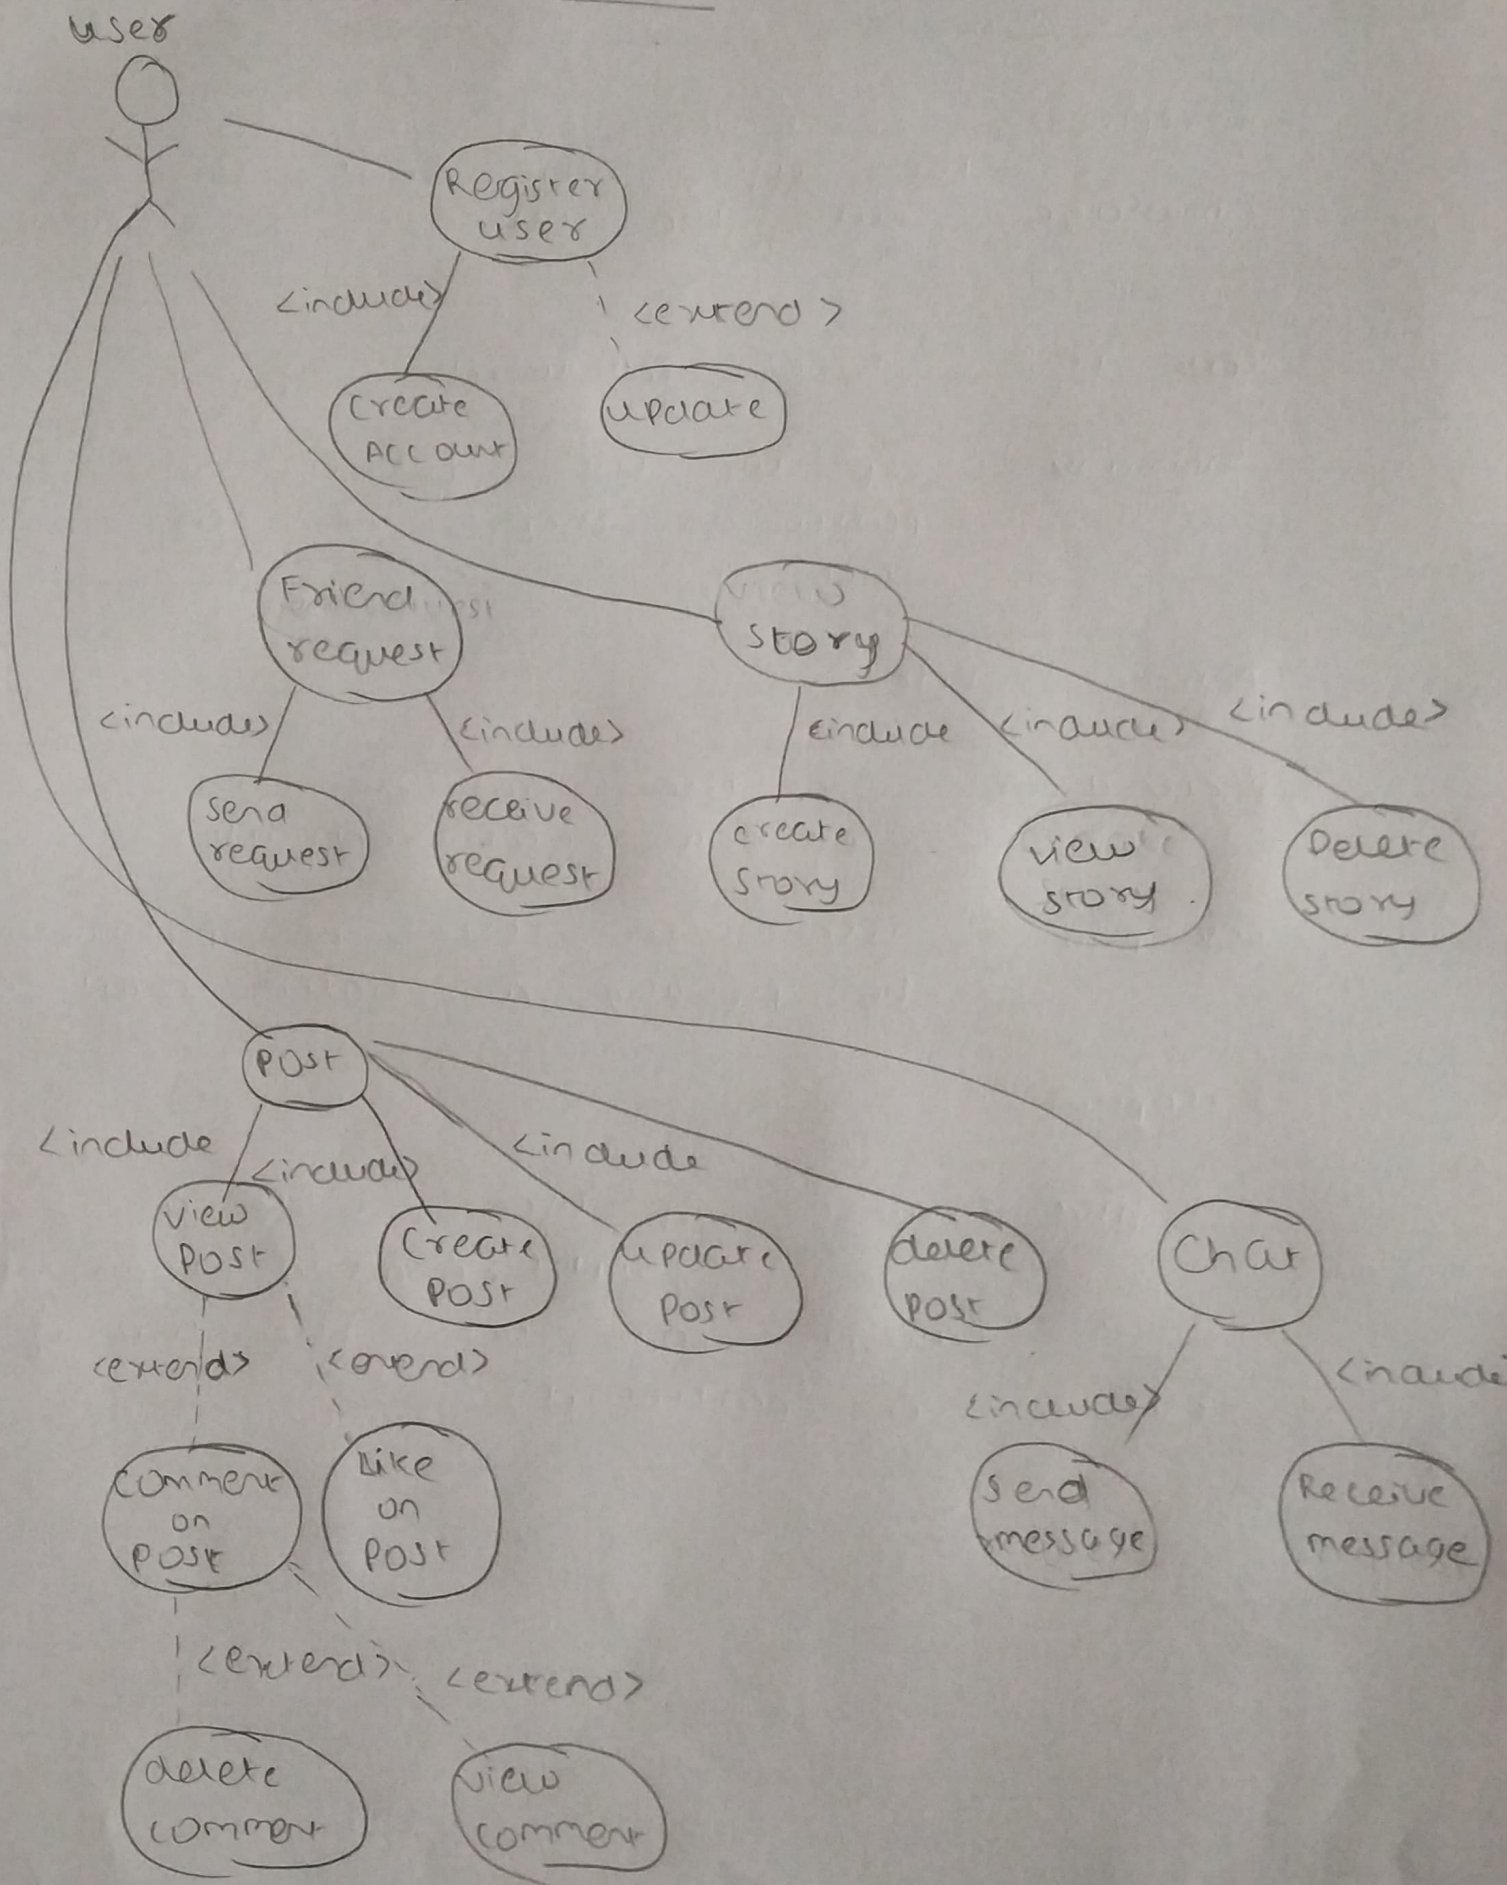 user
Register
user
<include>
<extend>
create
Account
update
Friend
request
view
story
<include>
<include>
<include
<include>
<include>
send
request
receive
request
create
story
view
story
Delete
story
Post
<include
<include>
<include
view
Post
Create
Post
update
Post
delete
post
Chat
<extend>
<exend>
<include>
<include
comment
on
Post
Like
on
Post
send
message
Receive
message
<extend>
<extend>
delete
comment
view
comment